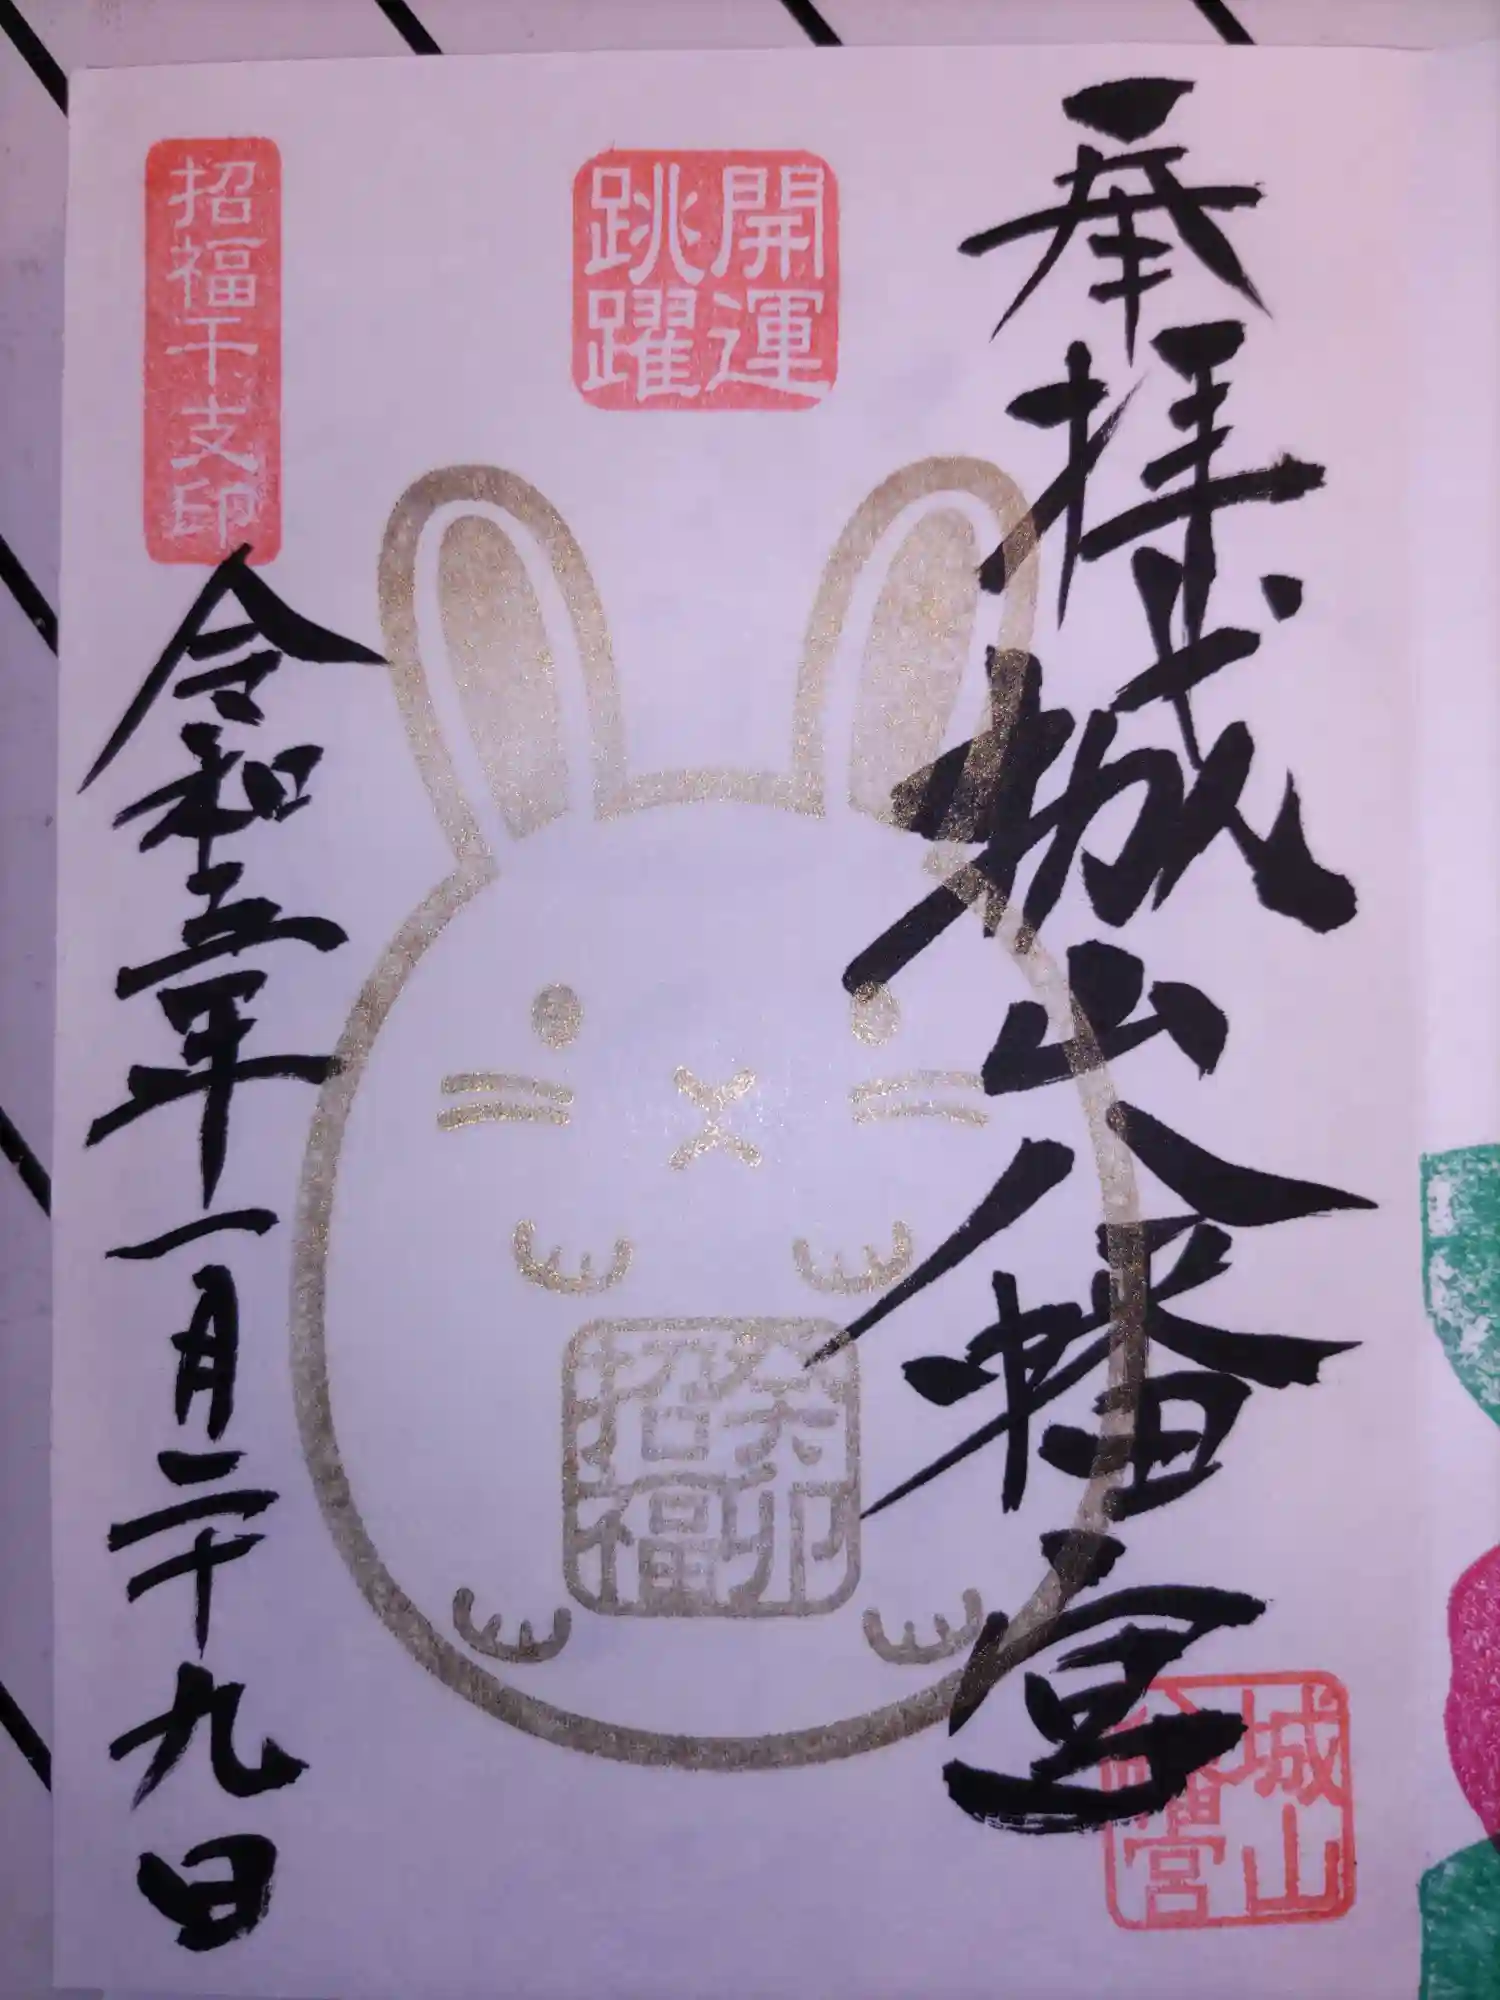 奉拝
城山八幡宮
城山
八幡宮
開運
跳躍
癸卯
招福
招福干支印
令和五年一月二十九日